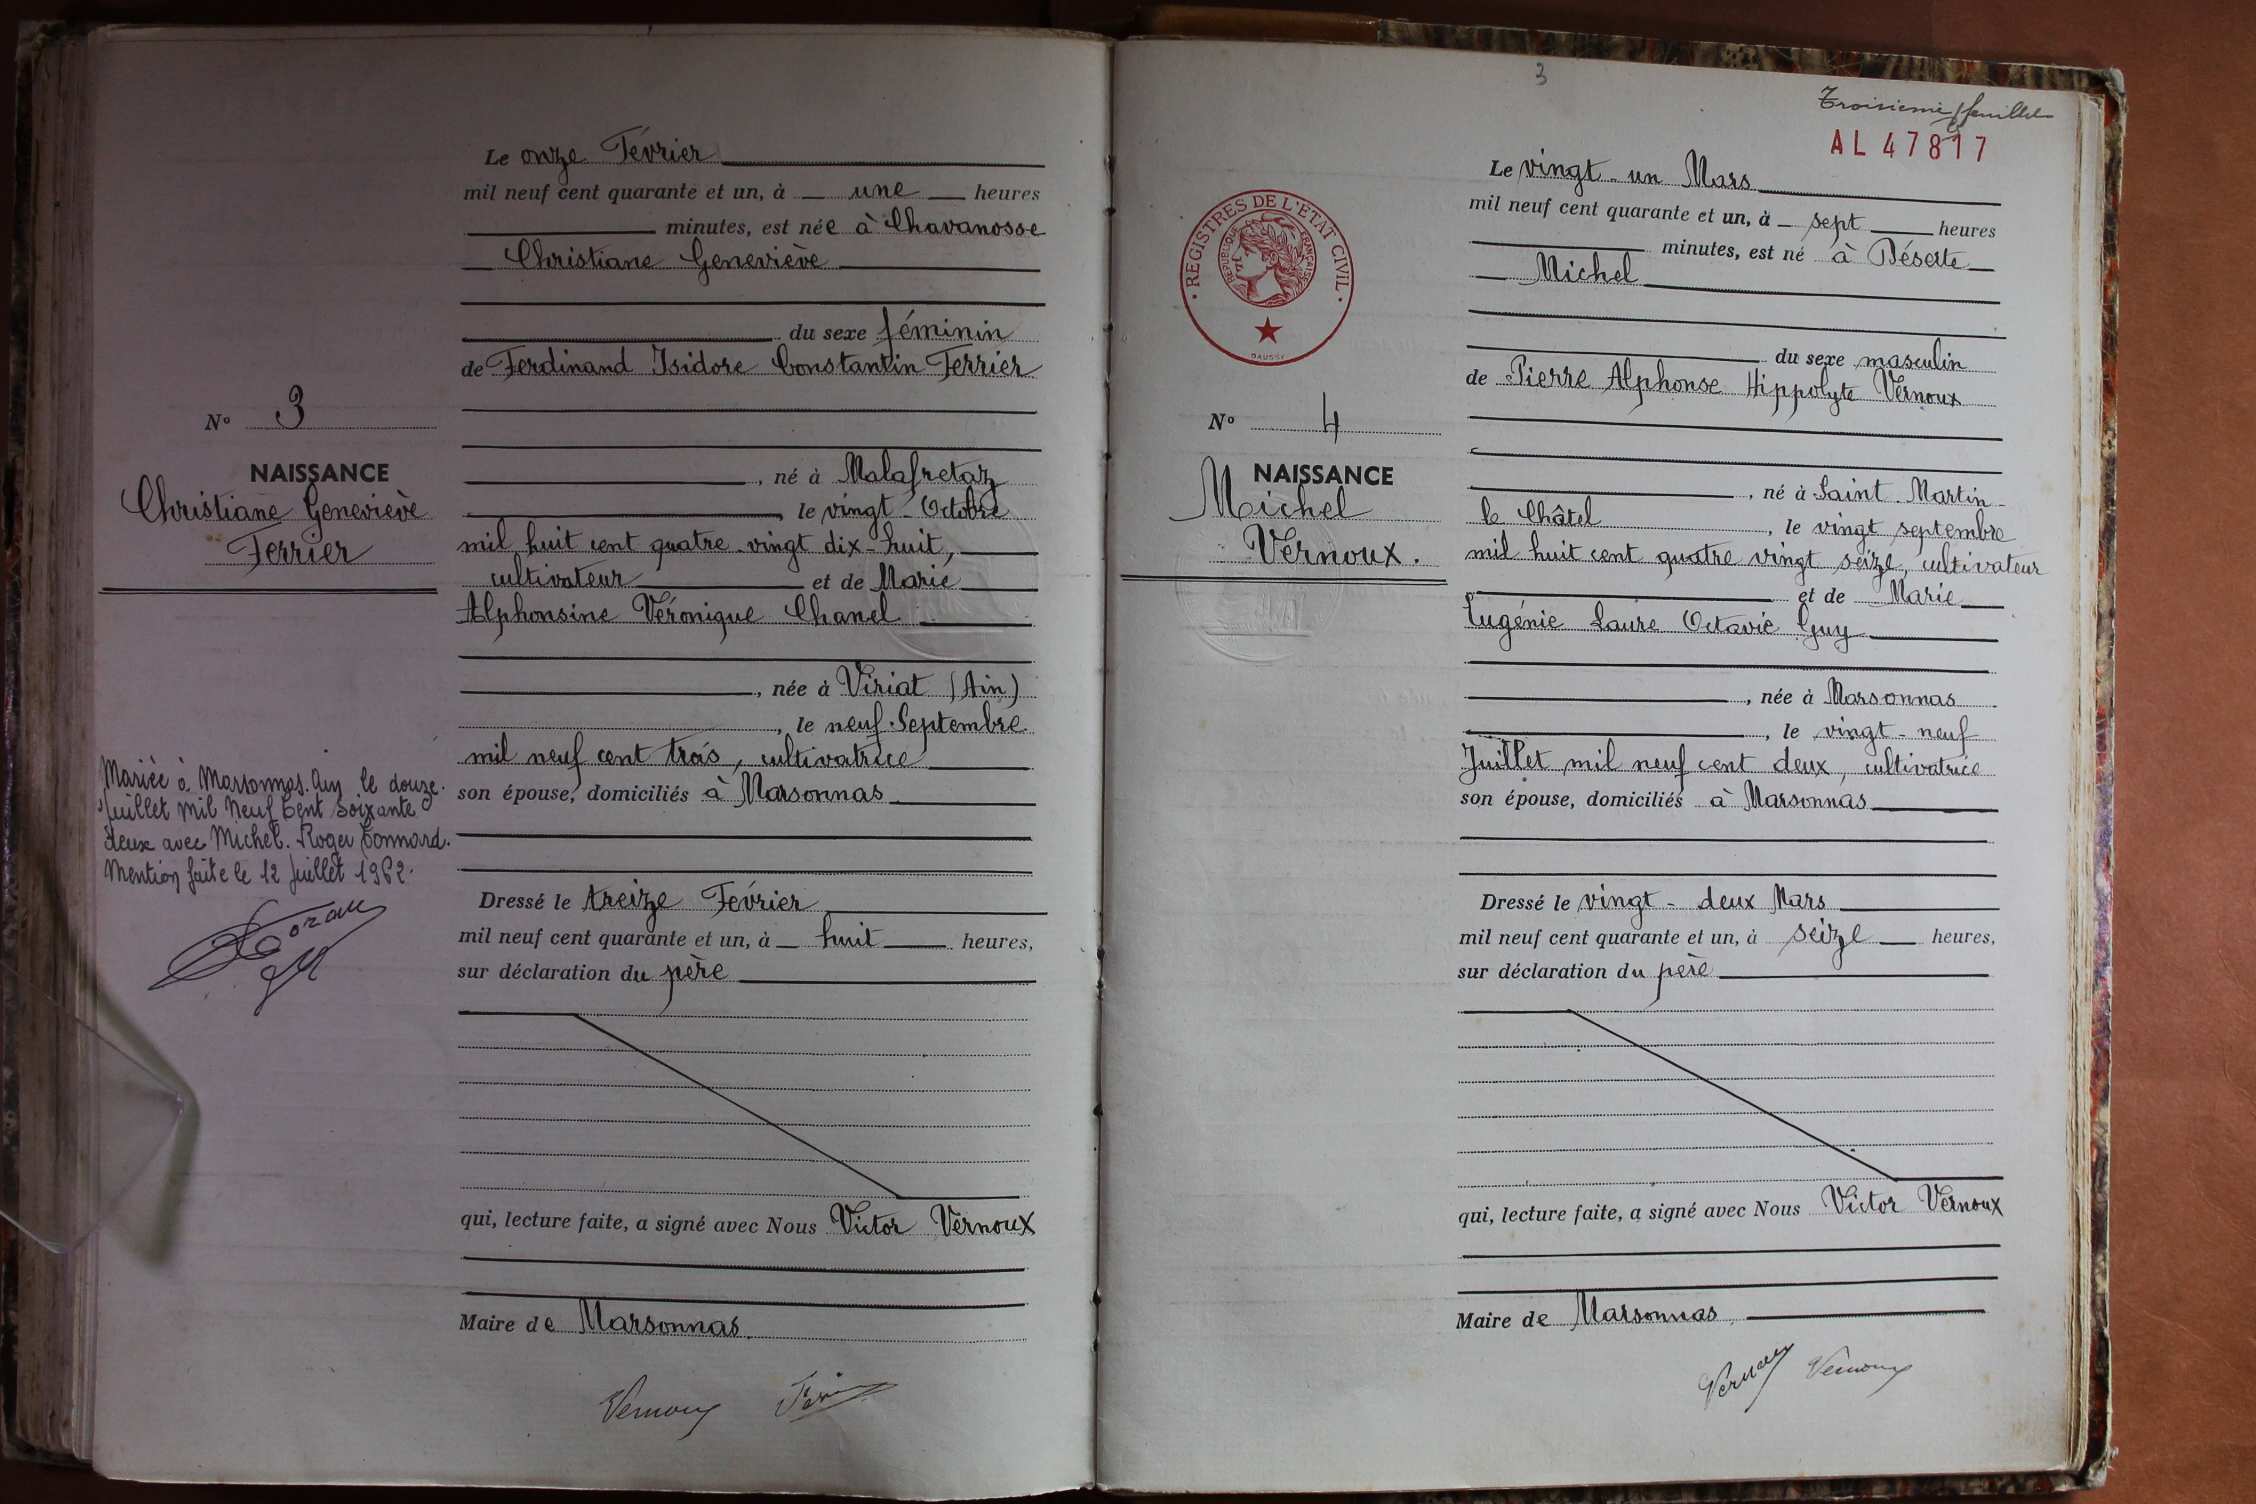 Le onze Février
mil neuf cent quarante et un, à une heures
minutes, est née à Chavanosse
Christiane Geneviève
du sexe féminin
de Ferdinand Isidore Constantin Ferrier
N° 3
NAISSANCE
Christiane Geneviève
Ferrier
, né à Malafretaz
, le vingt-Octobre
mil huit cent quatre-vingt dix-huit,
cultivateur et de Marie
Alphonsine Véronique Chanel
, née à Viriat (Ain)
, le neuf Septembre
mil neuf cent trois, cultivatrice
son épouse, domiciliés à Marsonnas
Mariée à Marsonnas. Ain le douze.
Juillet Mil Neuf Cent Soixante
deux avec Michel. Roger Connard.
Mention faite le 12 Juillet 1962.
Dressé le treize Février
mil neuf cent quarante et un, à huit heures,
sur déclaration du père
qui, lecture faite, a signé avec Nous Victor Vernoux
Maire de Marsonnas.
Vernoux
3
Troisième feuillet
AL 47817
Le vingt-un Mars
mil neuf cent quarante et un, à sept heures
minutes, est né à Déserte
Michel
du sexe masculin
de Pierre Alphonse Hippolyte Vernoux
REGISTRES DE L'ETAT CIVIL
REPUBLIQUE FRANÇAISE
DAUSSY
N° 4
NAISSANCE
Michel
Vernoux.
, né à Saint-Martin-
le Châtel, le vingt septembre
mil huit cent quatre vingt seize, cultivateur
et de Marie
Eugénie Laure Octavie Guy
, née à Marsonnas
, le vingt-neuf
Juillet mil neuf cent deux, cultivatrice
son épouse, domiciliés à Marsonnas
Dressé le vingt-deux Mars
mil neuf cent quarante et un, à seize heures,
sur déclaration du père
qui, lecture faite, a signé avec Nous Victor Vernoux
Maire de Marsonnas
Vernoux Vernoux